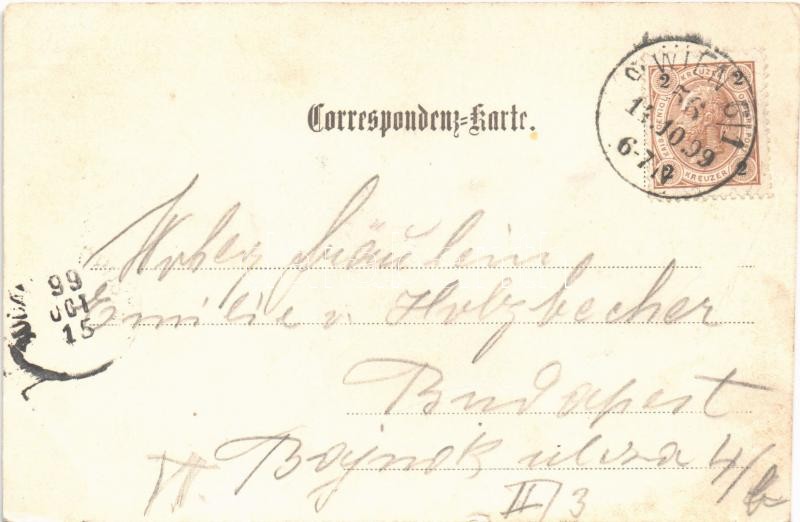 Correspondenz=Karte.
WIEN 6/1
14.10.99
6-7
2 KREUZER 2
2 KREUZER 2
99
OCT
15
Fräulein
Emilie v. Holzbecher
Budapest
VI. Bajnok utcza 4/b
II/3